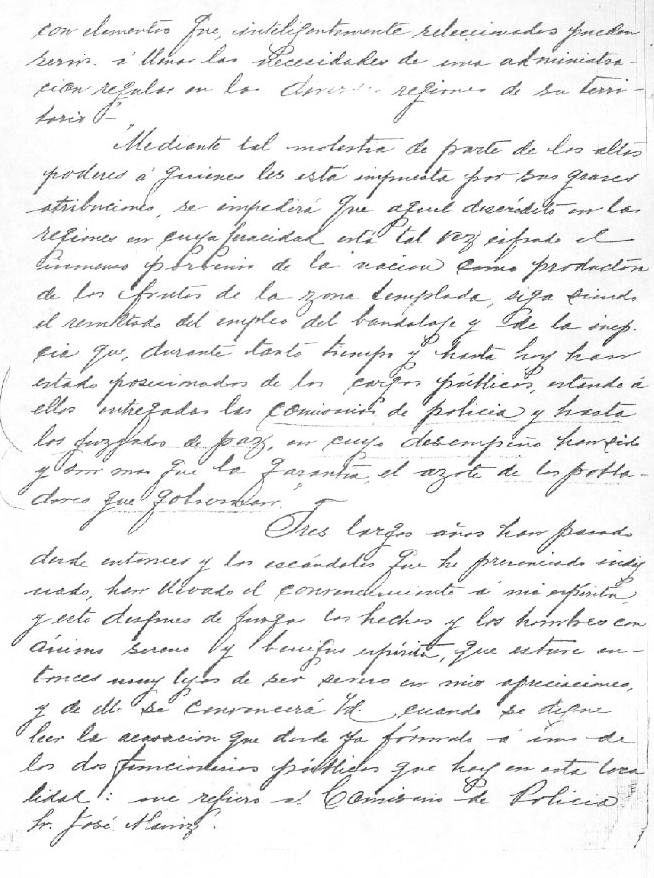 con elementos que, inteligentemente seleccionados puedan
servir á llenar las necesidades de una administra-
cion regular en las regiones de su terri-
torio"-
"Mediante tal molestia de parte de los altos
poderes á quienes les está impuesta por sus graves
atribuciones, se impedirá que aquel descrédito en las
regiones en cuya feracidad está tal vez cifrado el
porvenir de la nacion como productora
de los frutos de la zona templada, siga siendo
el resultado del empleo del bandalaje y de la inep-
cia que, durante tanto tiempo y hasta hoy han
estado posesionados de los cargos públicos, estando á
ellos entregadas las comisarías de policia y hasta
los juzgados de paz, en cuyo desempeño han sido
y son mas que la garantía, el azote de los pobla-
dores que gobiernan."-
Tres largos años han pasado
desde entonces y los escándalos que he presenciado indig
nado, han llevado el convencimiento á mi espíritu,
y esto despues de juzgar los hechos y los hombres con
ánimo sereno y benigno espíritu, que estuve en-
tonces muy lejos de ser severo en mis apreciaciones,
y de ello se convencerá Vd cuando se digne
leer la acusacion que desde ya fórmulo á uno de
los dos funcionarios públicos que hay en esta loca
lidad: me refiero al Comisario de Policia
Sr. José